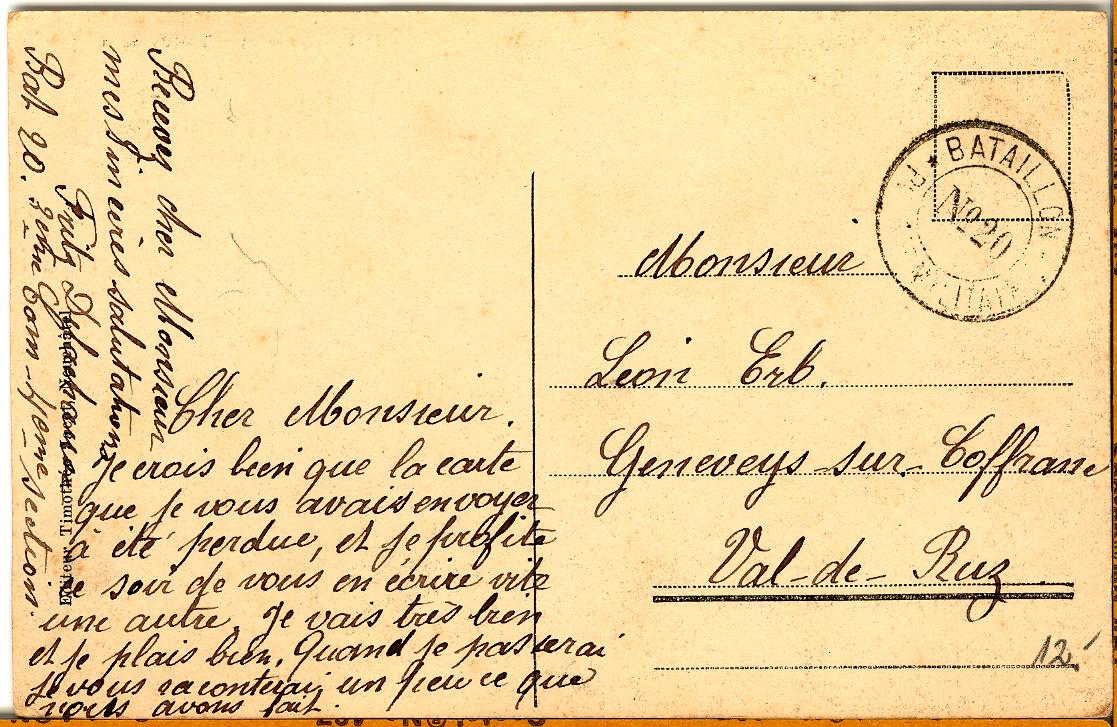 Cher Monsieur.
Je crois bien que la carte
que je vous avais envoyer
à été perdue, et je profite
ce soir de vous en écrire vite
une autre. Je vais très bien
et je plais bien. Quand je passerai
je vous raconterai un peu ce que
nous avons fait.
Recevez cher Monsieur
mes sincères salutations
Fritz
Bat 20. 2ème Com - 4ème section.
Editeur, Timothée
BATAILLON
No 20
MILITAI
Monsieur
Léon Erb.
Geneveys-sur-Coffrane
Val-de-Ruz
12.